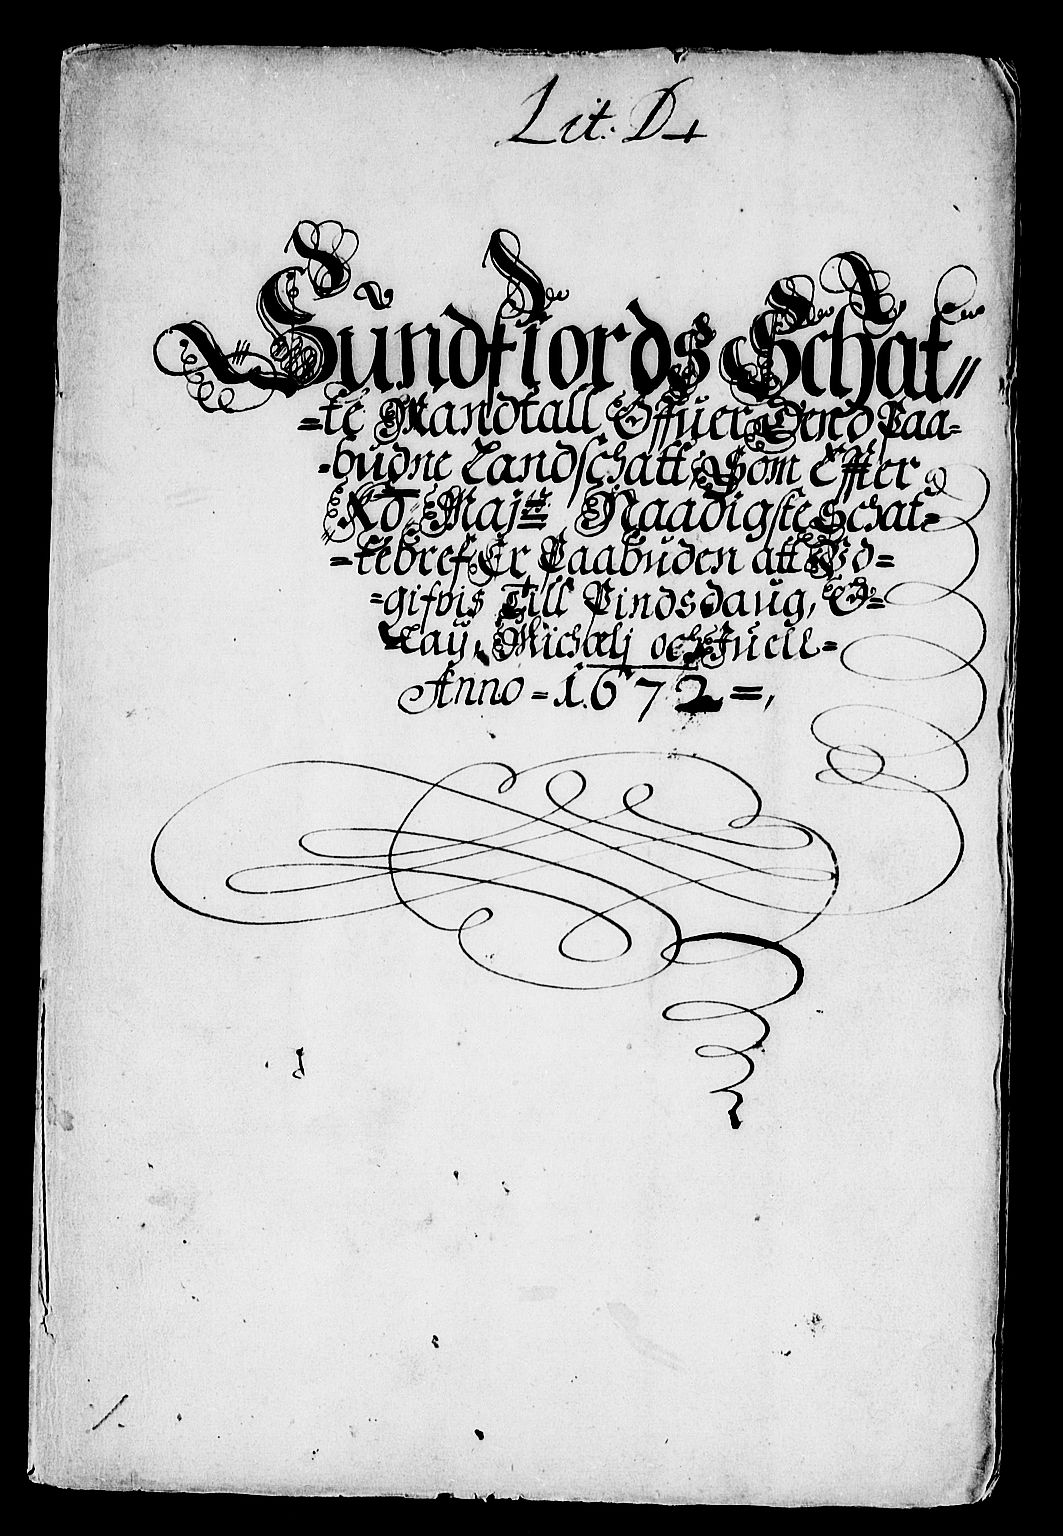 Lit. D
Sundfiords Schat=
=te Mandtall Offuer Dend Paa=
=budne Landschatt, Som Effter
Kō. Maj:tz Naadigste Schat=
=tebref Er Paabuden att Vd=
=gifvis Till Pindsdaug, O=
Lay, Michælj och Juell=
Anno = 1672 =,